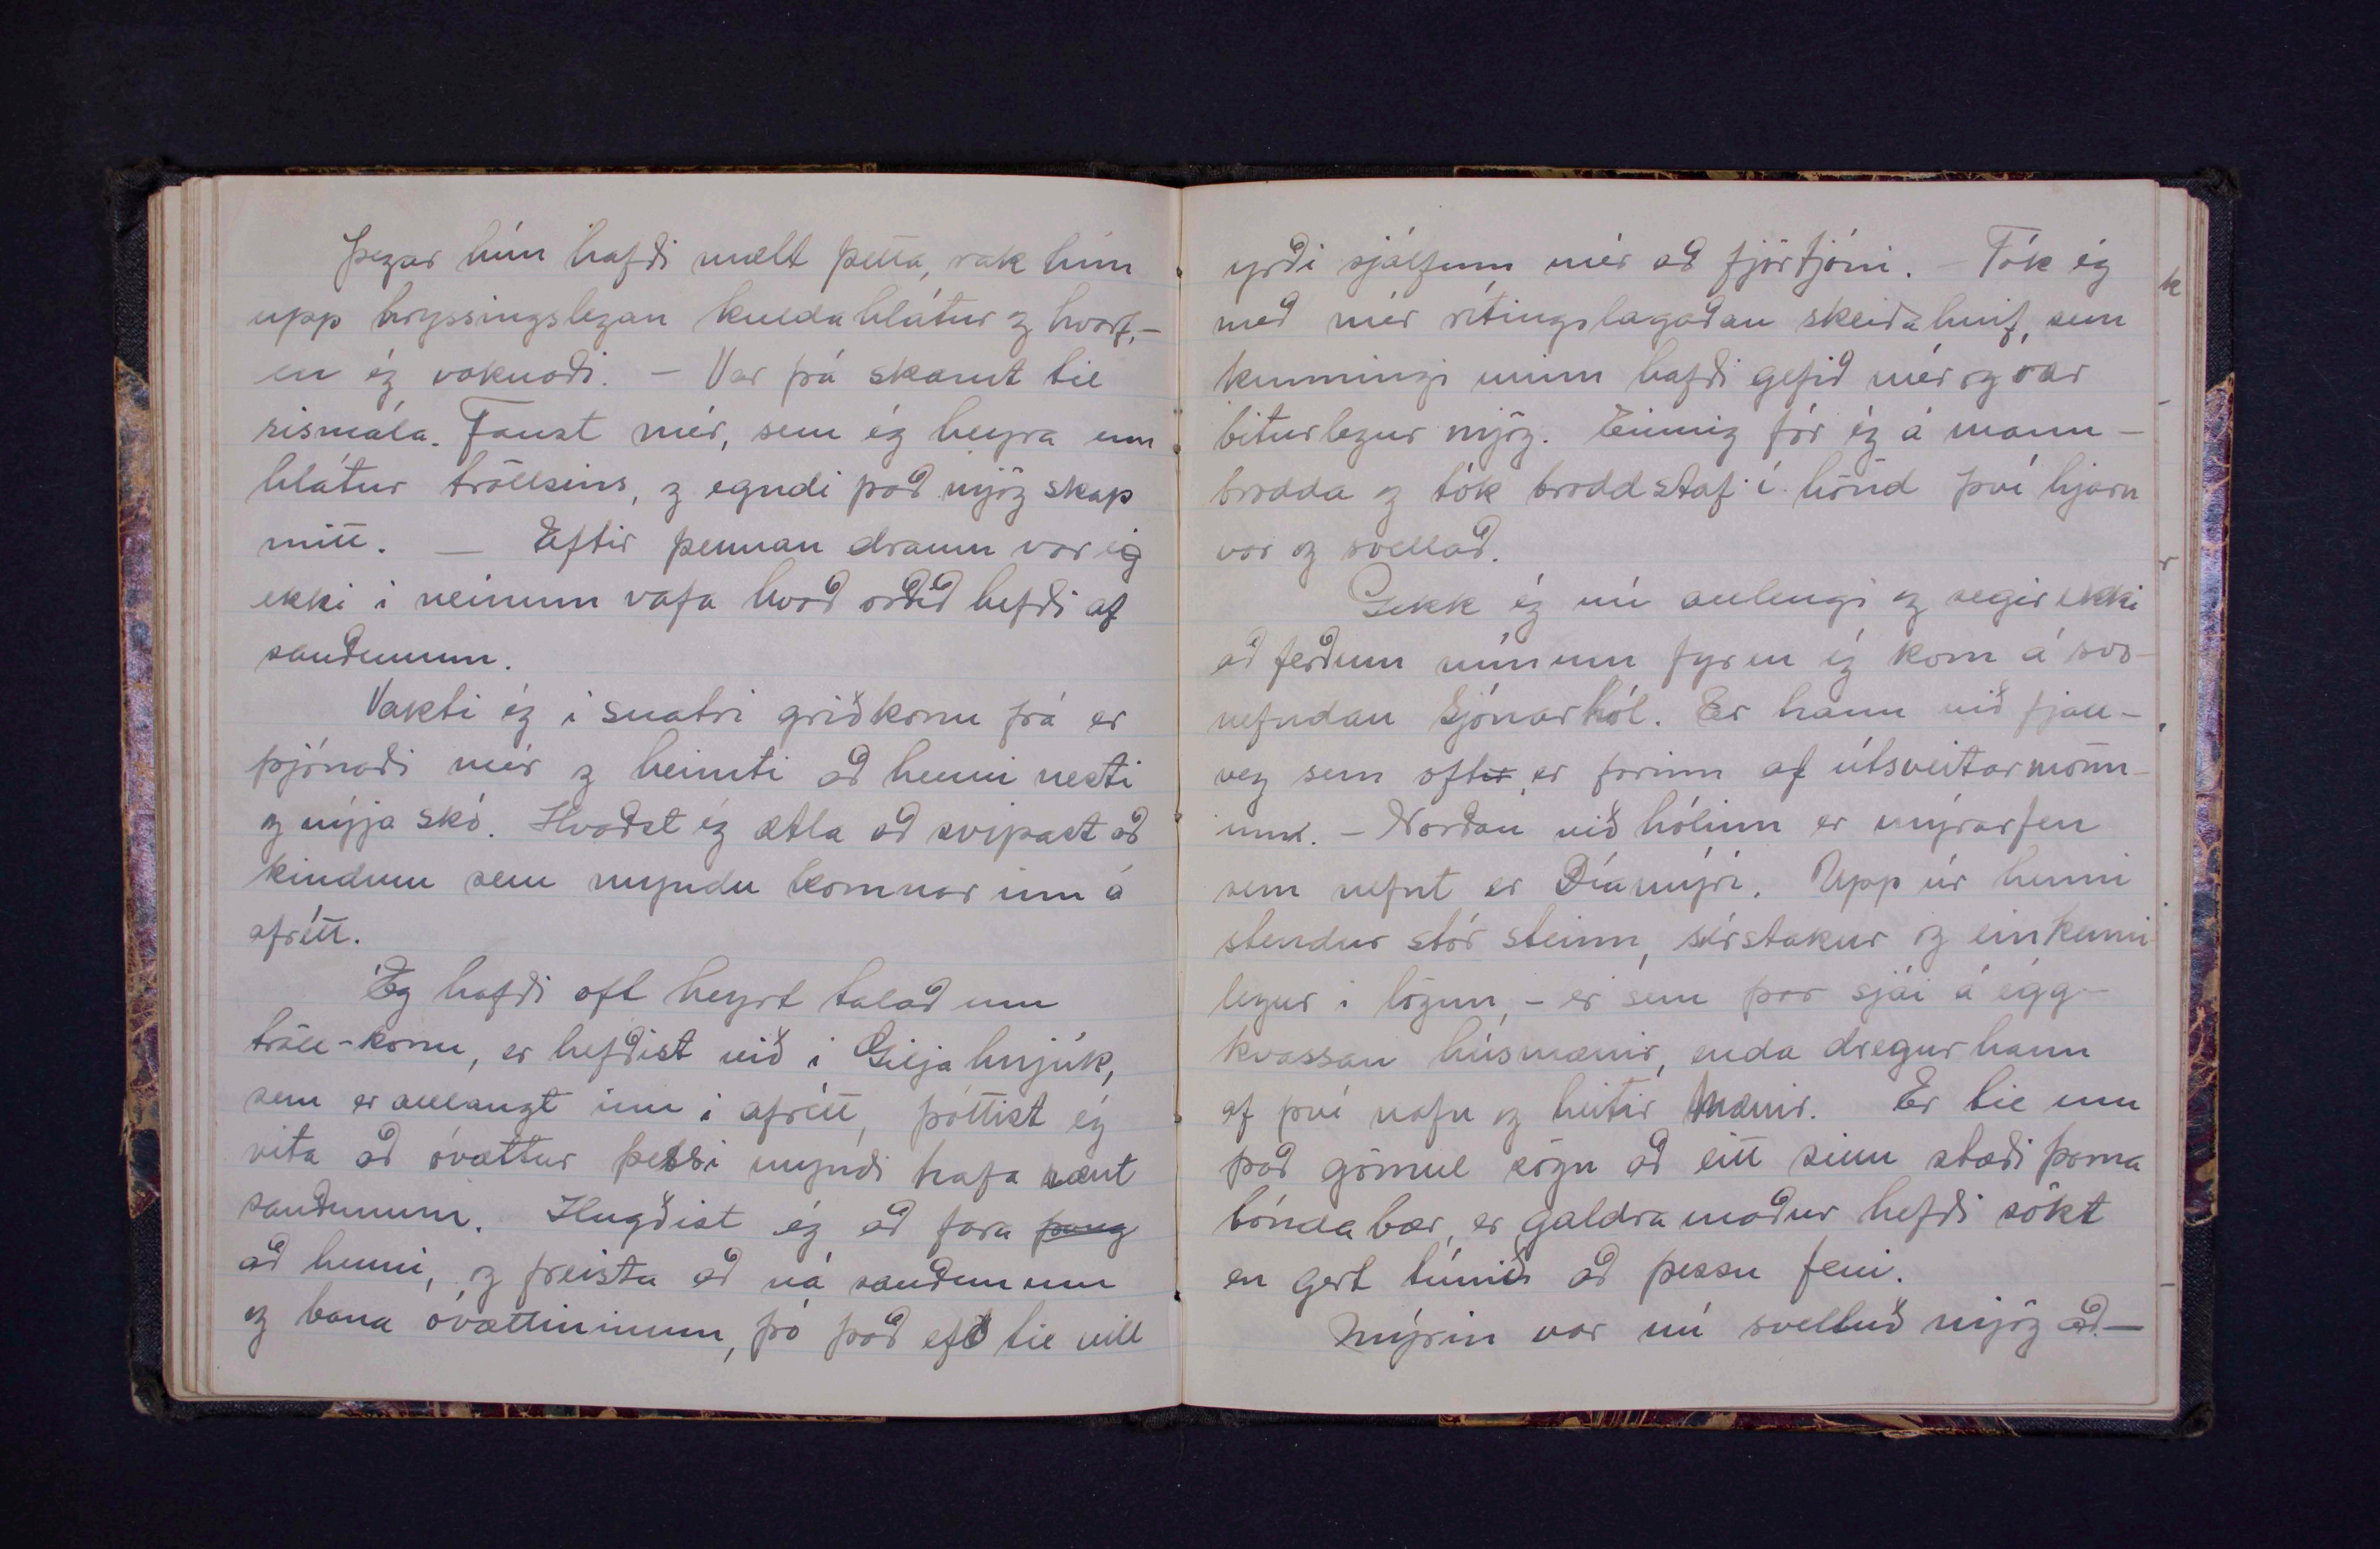 Þegar hún hafði mælt þetta, rak hún
upp hryssingslegan kuldahlátur og hvarf, –
en ég vaknaði. – Var þá skamt til
rismála. Fanst mér, sem ég heyra um
hlátur tröllsins, og egndi það mjög skap
mitt. – Eftir þennan draum var ég
ekki í neinum vafa hvað orðið hefði af
sauðunum.
Vakti ég í snatri griðkonu þá er
þjónaði mér og heimti að henni nesti
og nýja skó. Kvaðst ég ætla að svipast að
kindum sem myndu komnar inn á
afrétt.
Ég hafði oft heyrt talað um
tröll-konu, er hefðist við í Giljahnjúk,
sem er allangt inn í afrétt, þóttist ég
vita að óvættur þessi myndi hafa rænt
sauðunum. Hugðist ég að fara þang
að henni, og freista að ná sauðunum
og bana óvættininum, þó það eft til vill
yrði sjálfum mér að fjörtjóni. – Tók ég
með mér rítingslagaðan skeiðahníf, sem
kunningi minn hafði gefið mér og var
biturlegur mjög. Einnig fór ég á mann-
brodda og tók broddstaf í hönd því hjarn
var og svellað.
Gekk ég nú allengi og segir ekki
að ferðum mínum fyr en ég kom á svo-
nefndan Sjónarhól. Er hann við fjall-
veg sem oft er farinn af útsveitarmönn-
um. – Norðan við hólinn er mýrarfen
sem nefnt er Díamýri. Upp úr henni
stendur stór steinn, sérstakur og einkenni
legur í lögun, – er sem þar sjái á egg-
kvassan húsmænir, enda dregur hann
af því nafn og heitir Mænir. Er til um
það gömul sögn að eitt sinn stæði þarna
bóndabær, er galdramaður hefði sökt
en gert túnið að þessu feni.
Mýrin var nú svelluð mjög að. –